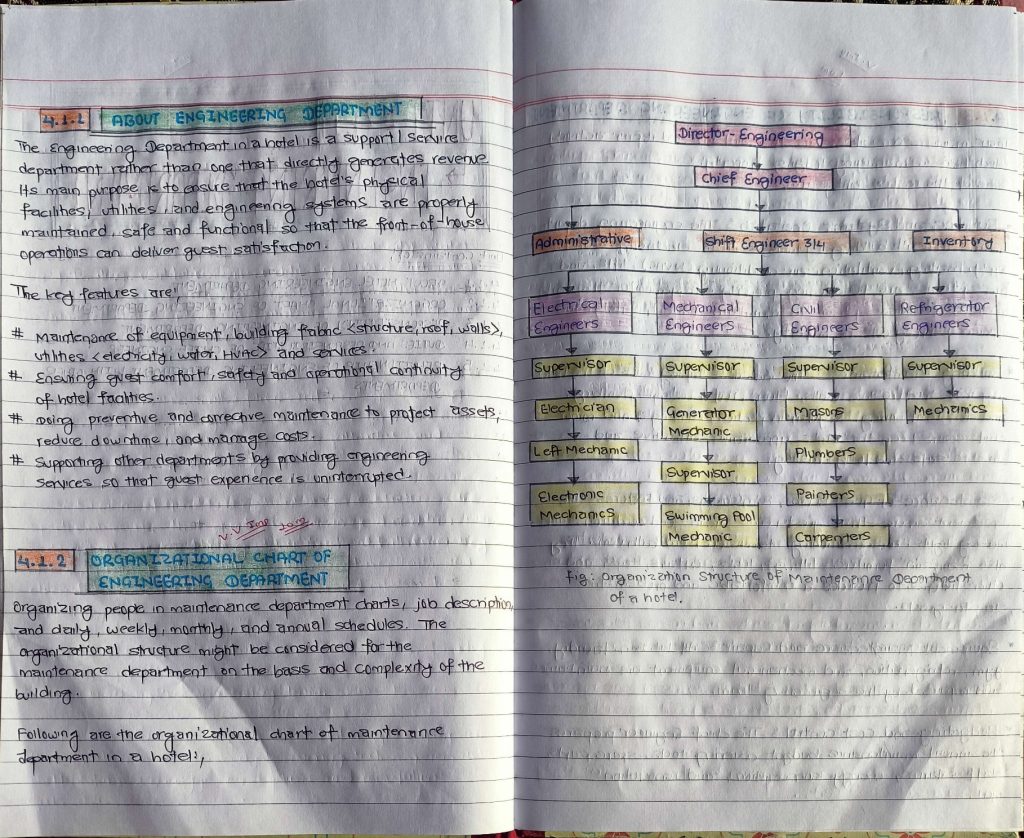 4.1.1 ABOUT ENGINEERING DEPARTMENT
The Engineering Department in a hotel is a support / service
department rather than one that directly generates revenue.
Its main purpose is to ensure that the hotel's physical
facilities, utilities, and engineering systems are properly
maintained, safe and functional so that the front-of-house
operations can deliver guest satisfaction.
The key features are;
# Maintenance of equipment, building fabric <structure, roof, walls>,
utilities <electricity, water, HVAC> and services.
# Ensuring guest comfort, safety and operational continuity
of hotel facilities.
# Doing preventive and corrective maintenance to protect assets,
reduce downtime, and manage costs.
# Supporting other departments by providing engineering
services so that guest experience is uninterrupted.
V.V Imp
4.1.2 ORGANIZATIONAL CHART OF
ENGINEERING DEPARTMENT
Organizing people in maintenance department charts, job description,
and daily, weekly, monthly, and annual schedules. The
organizational structure might be considered for the
maintenance department on the basis and complexity of the
building.
Following are the organizational chart of maintenance
department in a hotel;,
Director - Engineering
Chief Engineer
Administrative
Shift Engineer 3/4
Inventory
Electrical
Engineers
Mechanical
Engineers
Civil
Engineers
Refrigerator
Engineers
Supervisor
Supervisor
Supervisor
Supervisor
Electrician
Generator
Mechanic
Masons
Mechanics
Left Mechanic
Supervisor
Plumbers
Electronic
Mechanics
Swimming Pool
Mechanic
Painters
Carpenters
Fig: Organization Structure of Maintenance Department
of a hotel.